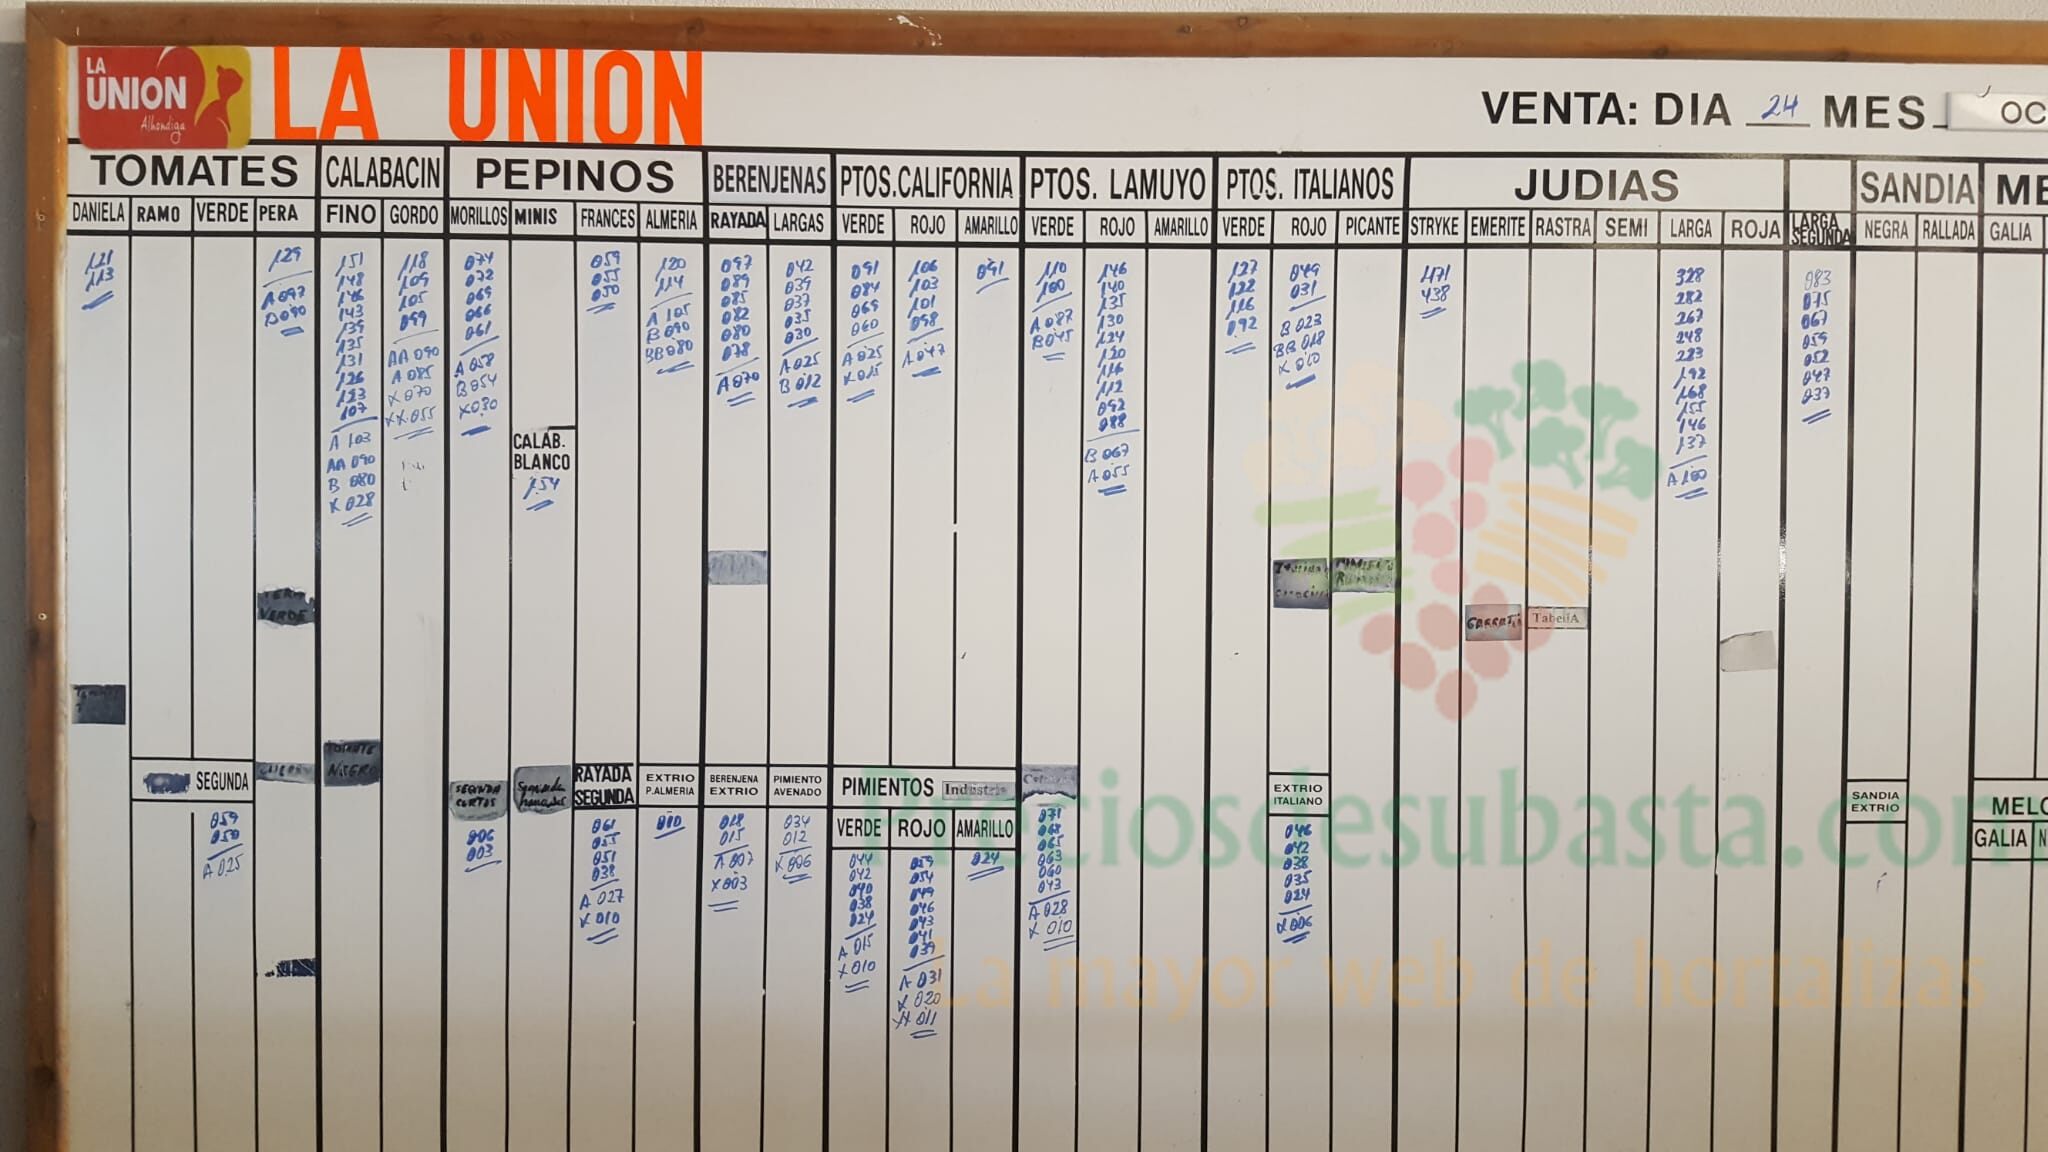 LA
UNION
Alhóndiga
LA UNION
VENTA: DIA 24 MES OC
TOMATES CALABACIN PEPINOS BERENJENAS PTOS.CALIFORNIA PTOS. LAMUYO PTOS. ITALIANOS JUDIAS SANDIA ME
DANIELA RAMO VERDE PERA FINO GORDO MORILLOS MINIS FRANCES ALMERIA RAYADA LARGAS VERDE ROJO AMARILLO VERDE ROJO AMARILLO VERDE ROJO PICANTE STRYKE EMERITE RASTRA SEMI LARGA ROJA LARGA SEGUNDA NEGRA RALLADA GALIA
121
113
129
A 097
B 090
151
148
146
143
139
135
131
126
123
107
A 103
AA 090
B 080
X 028
118
109
105
099
AA 090
A 085
X 070
XX 055
074
072
069
066
061
A 058
B 054
X 030
CALAB.
BLANCO
154
059
055
050
120
114
A 105
B 090
BB 080
097
089
085
082
080
078
A 070
042
039
037
035
030
A 025
B 012
091
084
069
060
A 025
X 015
106
103
101
098
A 047
091
110
100
A 087
B 045
146
140
135
130
124
120
116
112
092
088
B 067
A 055
127
122
116
092
049
031
B 023
BB 018
X 010
471
438
328
282
267
248
223
192
168
155
146
137
A 100
083
075
067
059
052
047
037
VERDE
NEGRO
GARRAFA
TabellA
SEGUNDA
059
050
A 025
SEGUNDA
CORTOS
006
003
Segunda
RAYADA
SEGUNDA
061
055
051
038
A 027
X 010
EXTRIO
P.ALMERIA
010
BERENJENA
EXTRIO
018
015
A 007
X 003
PIMIENTO
AVENADO
034
012
X 006
PIMIENTOS Industria
VERDE ROJO AMARILLO
044
042
040
038
024
A 015
X 010
059
054
049
046
043
041
039
A 031
X 020
XX 011
024
071
068
065
063
060
043
A 028
X 010
EXTRIO
ITALIANO
046
042
038
035
024
X 006
SANDIA
EXTRIO
MELO
GALIA N
Preciosdesubasta.com
La mayor web de hortalizas